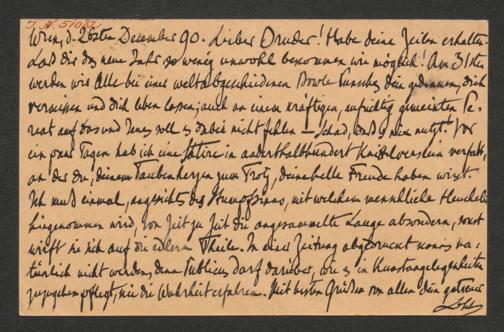 J. N. 51082
Wien, d. 26sten December 90. Lieber Bruder! Habe deine Zeilen erhalten.
Laß dir das neue Jahr so wenig unwohl bekommen wie möglich! Am 31sten
werden wir Alle bei einer weltabgeschiedenen Bowle Punsches dein gedenken, dich
vermissen und dich leben lassen; auch an einem kräftigen, aufrichtig gemeinten Pe-
reat auf das und Jenes soll es dabei nicht fehlen — schad, daß es nix nutzt! Vor
ein paar Tagen hab ich eine Satire in anderthalbhundert verfaßt,
an der du, deinem Taubenherzen zum Trotz, deine helle Freude haben wirst.
Ich muß einmal, angesichts des Stumpfsinns, mit welchem menschliche
hingenommen wird, von Zeit zu Zeit die angesammelte Lauge absondern, sonst
wirft sie sich auf die edlern Theile. In einer Zeitung abgedruckt kann's na-
türlich nicht werden, denn Publicus darf darüber, wie es in Kunstangelegenheiten
zuzugehen pflegt, nie die Wahrheit erfahren. Mit besten Grüßen von allen dein getreuer